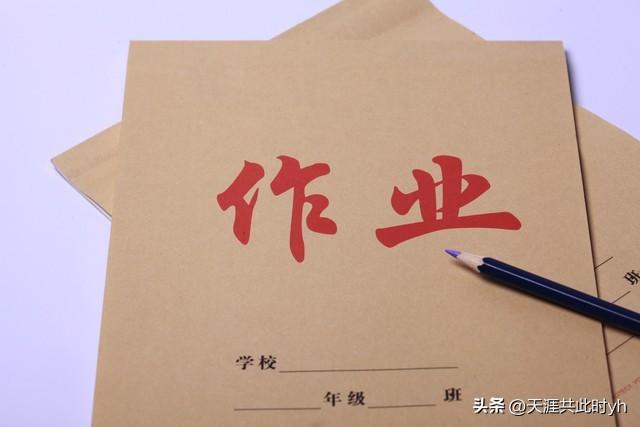 作业
学校
年级 班
班
头条 @天涯共此时yh